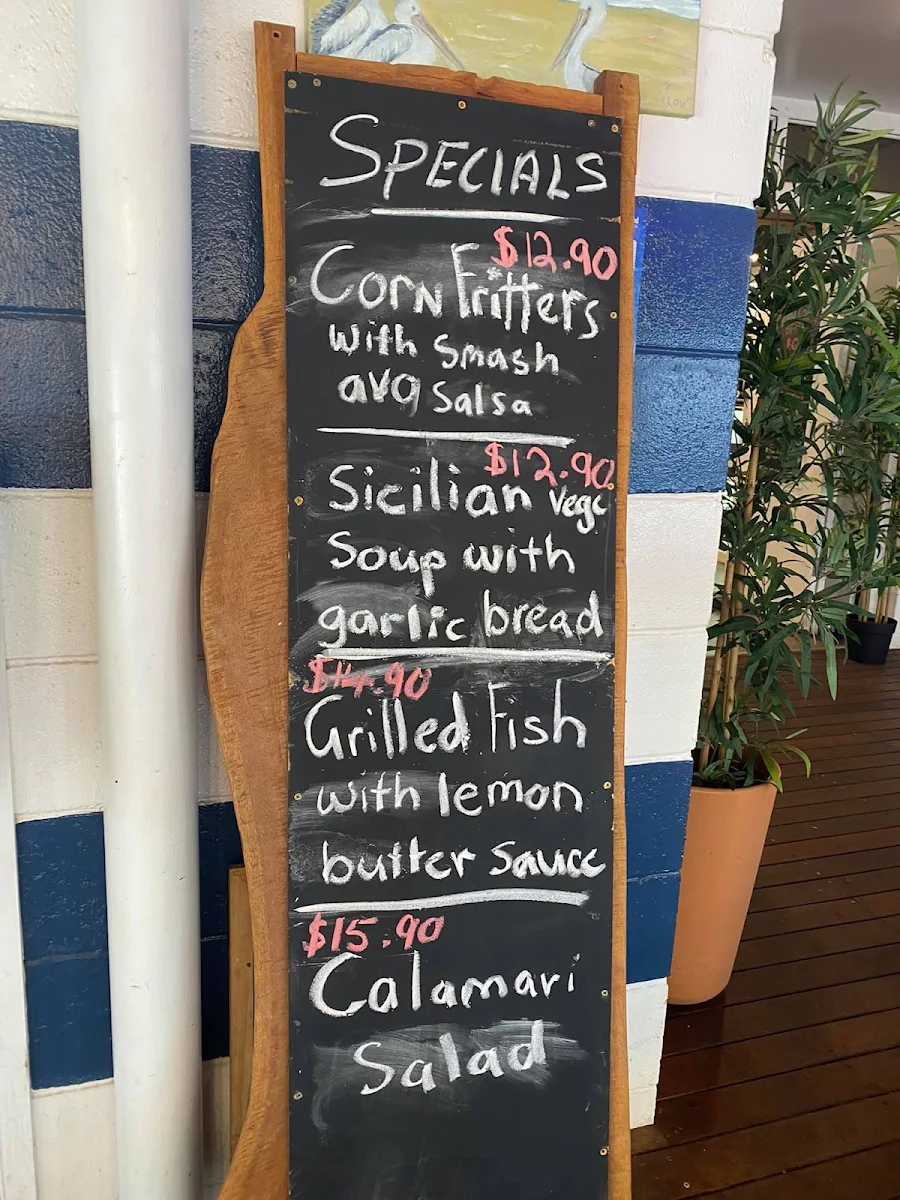 SPECIALS
$12.90
Corn Fritters
with Smash
avo Salsa
$12.90
Sicilian Vege
Soup with
garlic bread
$14.90
Grilled Fish
with lemon
butter sauce
$15.90
Calamari
Salad